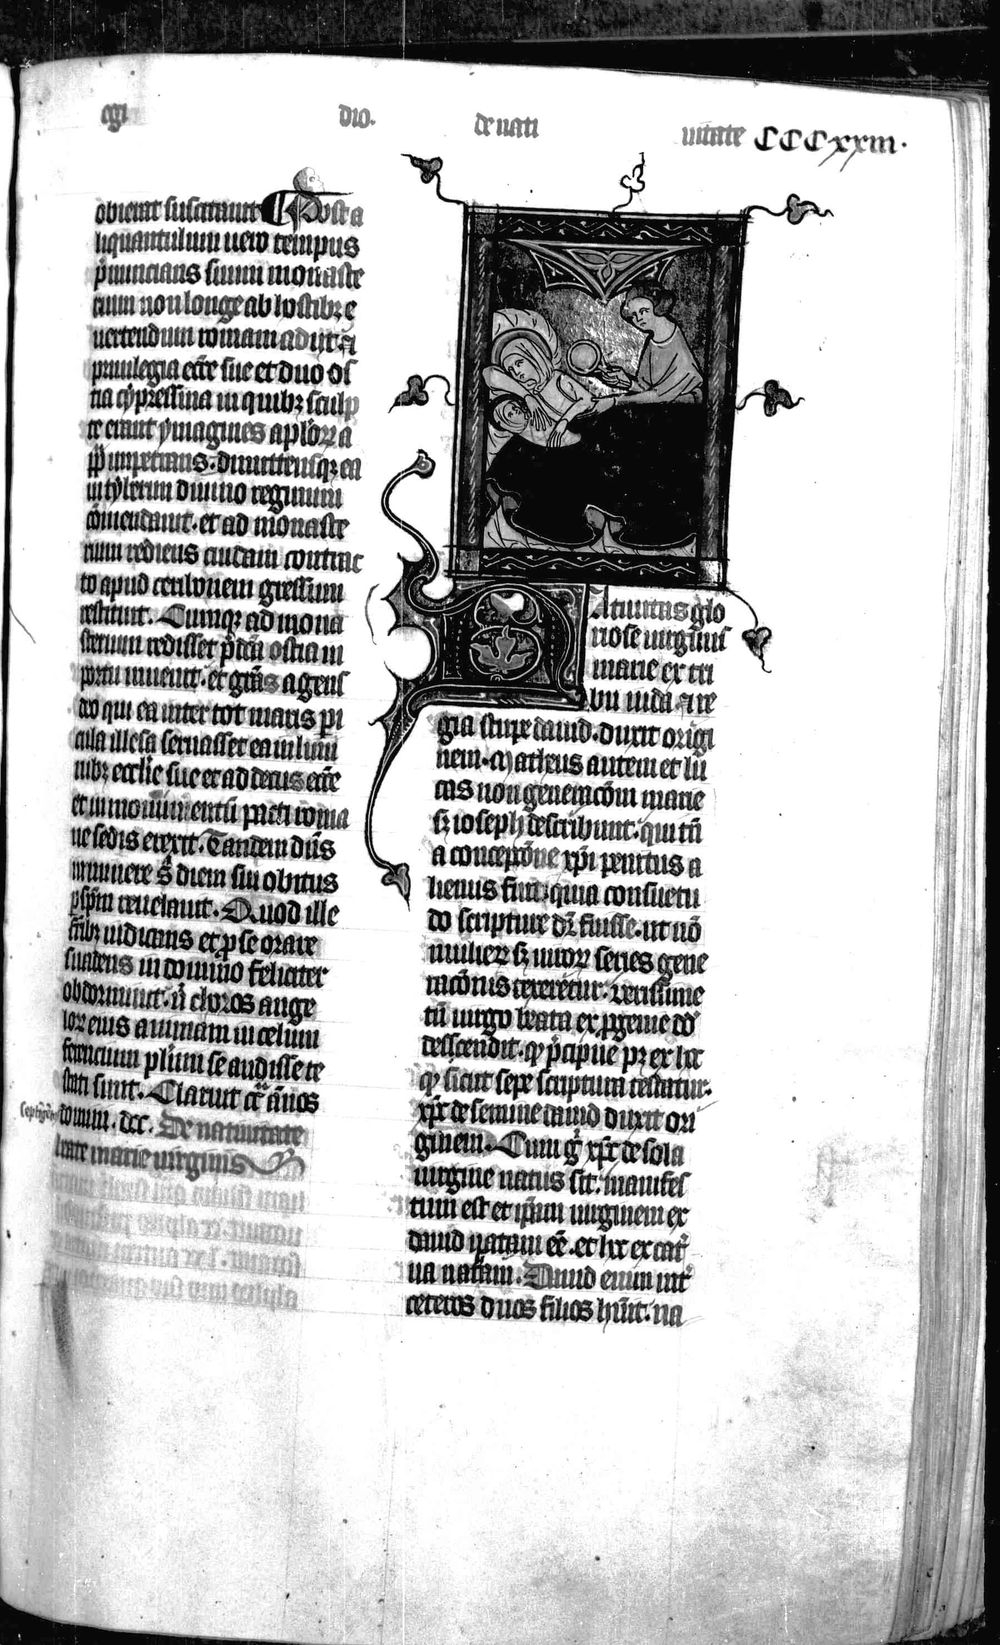 egi dio. de nati uitate CCCxxiii.
obierat suscitauit Post a
liquantulum uero tempus
p̄nuncians suum monaste
rium non longe ab hostibꝫ e
uertendum romam adijt. ⁊
priuilegia ecc̄e sue et duo os
tia cypressina in quibꝫ sculp
te erant ymagines ap̄loꝝ a
pp̄ impetrans. dimittensqꝫ ea
in tyberim diuino regimini
cōmendauit. et ad monaste
rium rediens cuidam contrac
to apud
restituit. Cumqꝫ ad mona
sterium redisset p̄dc̄a ostia in
portu inuenit. et gr̄as agens
deo qui ea inter tot maris pi
cula illesa seruasset ea in limi
nibꝫ eccl̄ie sue et ad decus ecc̄e
et in monumentū pacti roma
ne sedis erexit. Tandem dn̄s
imminere s̄ diem sui obitus
ꝑ sp̄m reuelauit. Quod ille
fr̄ibꝫ indicans et ꝓ se orare
suadens in domino feliciter
obdormiuit. ⁊ choros ange
loꝝ eius animam in celum
ferencium plimi se audisse te
stati sunt. Claruit cc̄ annos
septīgētos domini. dcc. De natiuitate
beate marie uirginis
Natiuitas glo
riose uirginis
marie ex tri
bu iuda ⁊ re
gia stirpe dauid. duxit origi
nem. Matheus autem et lu
cas non generacōm marie
sꝫ ioseph describunt. qui tn̄
a concepcōne xp̄i penitus a
lienus fuit. quia consuetu
do scripture dr̄ fuisse. ut nō
mulieꝝ sꝫ uiroꝝ series gene
racōnis texeretur. verissime
tn̄ uirgo beata ex ꝓgenie dd̄
descendit. qꝫ p̄cipue pꝫ ex hoc
qꝫ sicut sepe scriptura testatur.
xp̄c de semine dauid duxit ori
ginem. Cum g̊ xp̄c de sola
uirgine natus sit. manifes
tum est et ip̄am uirginem ex
dauid natam eē. et hoc ex cath
na nathan. Dauid enim int̄
ceteros duos filios hūit. na